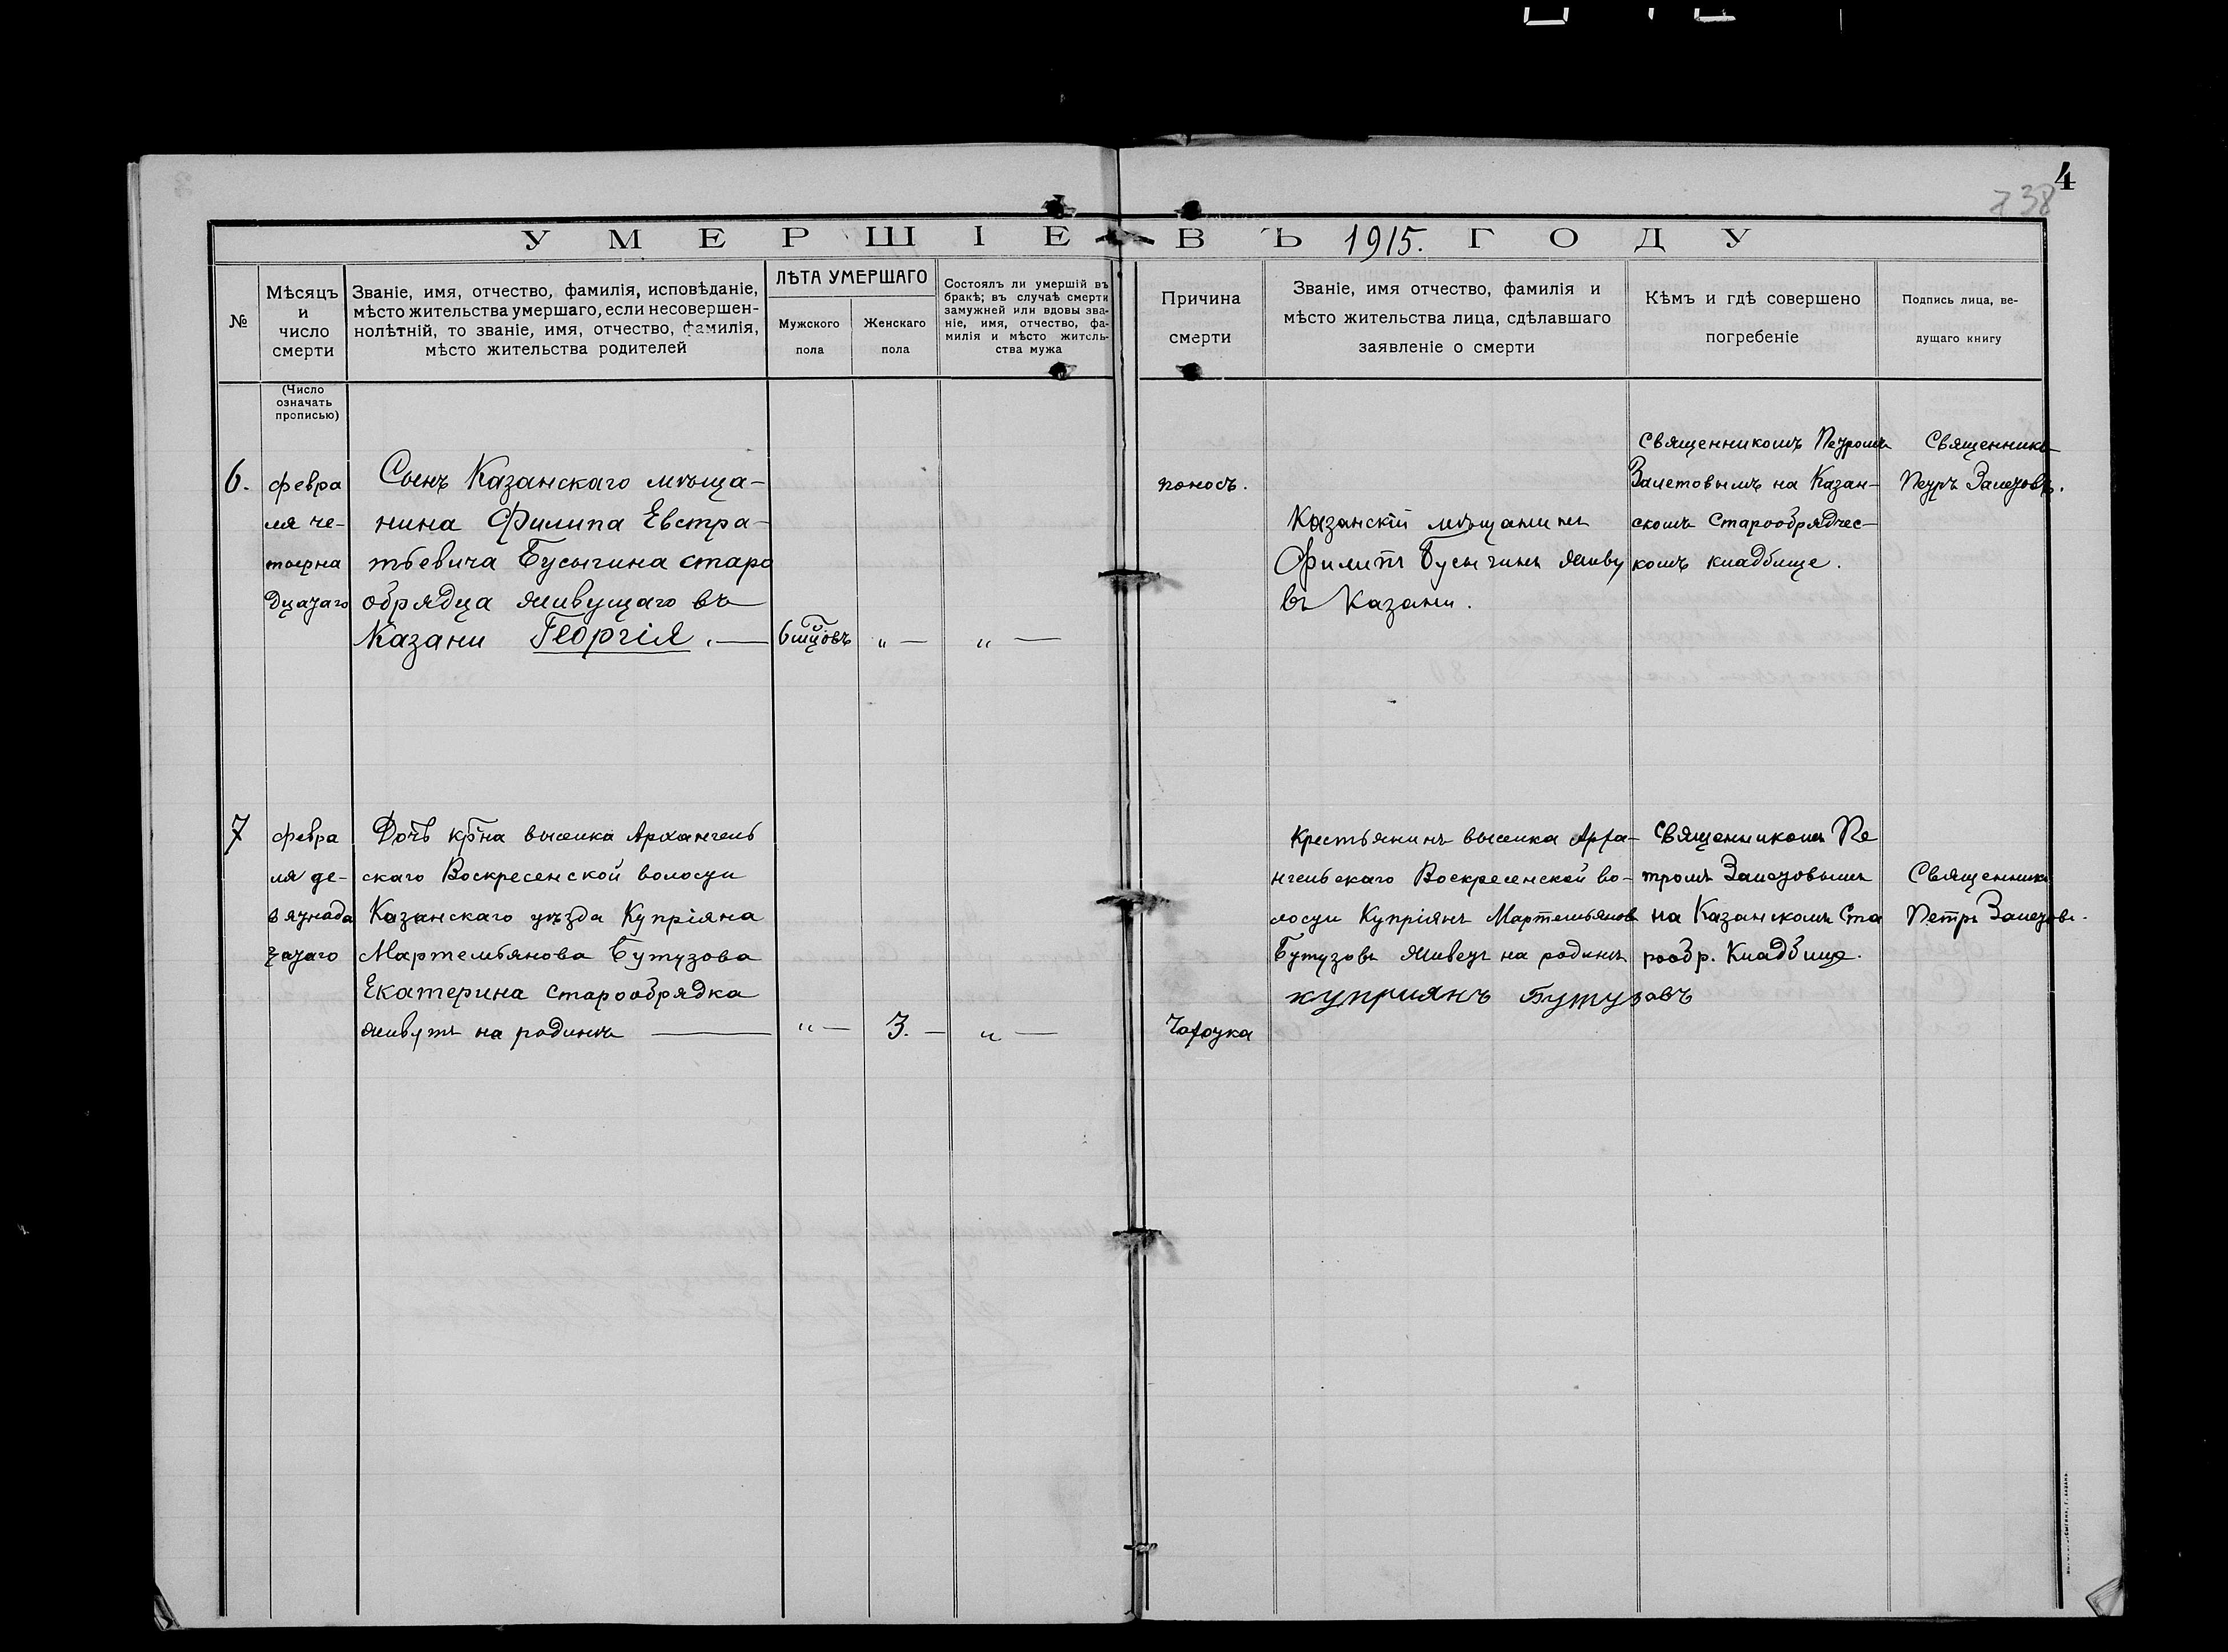 4
738
УМЕРШІЕ ВЪ 1915. ГОДУ
№
Мѣсяцъ
и
число
смерти
Званіе, имя, отчество, фамилія, исповѣданіе,
мѣсто жительства умершаго, если несовершен-
нолѣтній, то званіе, имя, отчество, фамилія,
мѣсто жительства родителей
ЛѢТА УМЕРШАГО
Мужского
пола
Женскаго
пола
Состоялъ ли умершій въ
бракѣ; въ случаѣ смерти
замужней или вдовы зва-
ніе, имя, отчество, фа-
милія и мѣсто житель-
ства мужа
Причина
смерти
Званіе, имя отчество, фамилія и
мѣсто жительства лица, сдѣлавшаго
заявленіе о смерти
Кѣмъ и гдѣ совершено
погребеніе
Подпись лица, ве-
дущаго книгу
(Число
означать
прописью)
6.
февра
ля че-
тверна
дцатаго
Сынъ Казанскаго мѣща-
нина Филипа Евстра-
тьевича Бусыгина старо
обрядца живущаго въ
Казани Георгія. —
6 мцовъ
„ —
„ —
поносъ.
Казанскій мѣщанинъ
Филипъ Бусыгинъ живу
въ Казани.
Священникомъ Петромъ
Залетовымъ на Казан-
скомъ Старообрядчес-
комъ кладбище.
Священникъ
Петръ Залетовъ.
7
февра
ля де-
вятнадца
цатаго
Дочь кр-на выселка Архангель
скаго Воскресенской волости
Казанскаго уѣзда Купріяна
Мартемьянова Бутузова
Екатерина старообрядка
живутъ на родинѣ —
„ —
3. —
„ —
Чахотка
Крестьянинъ выселка Арха-
нгельскаго Воскресенской во-
лости Купріянъ Мартемьяновъ
Бутузовъ живетъ на родинѣ
куприянъ Бутузовъ
Священникомъ Пе
тромъ Залетовымъ
на Казанскомъ Ста
рообр. Кладбище.
Священникъ
Петръ Залетовъ.